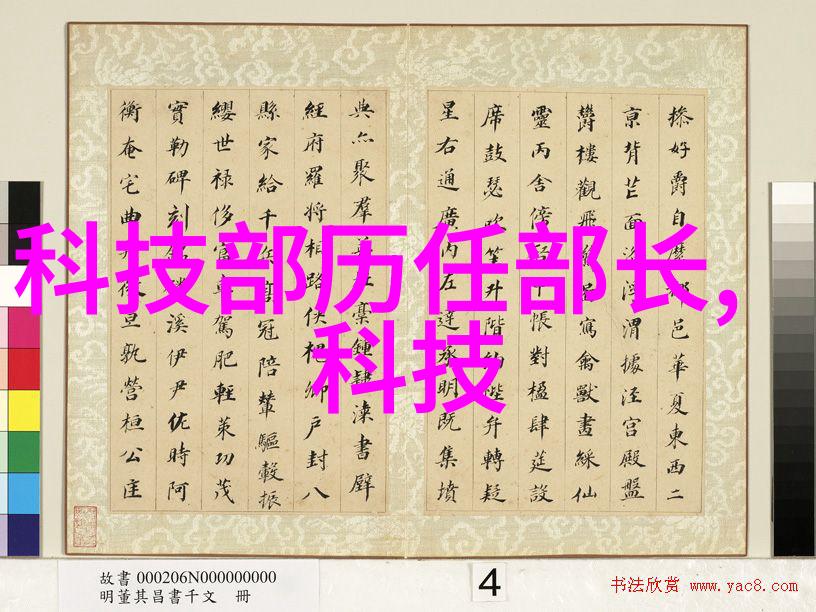 科技部历任部长,
科技
操好爵自縻都邑華夏東西二
京背芒面洛浮渭據涇宮殿盤
欝樓觀飛寫禽獸畫綵仙
靈丙舍傍帳對楹肆莚設
席鼓瑟吹笙升階納陛弁轉疑
星右通廣内左達承明既集墳
典亦聚羣稾鍾隸漆書壁
經府羅將相路俠槐卿戶封八
縣家給千冠陪輦驅轂振
纓世祿侈富車駕肥輕策功茂
實勒碑刻溪伊尹佐時阿
衡奄宅曲旦孰營桓公匡
故書 000206N000000000
明董其昌書千文 冊
4
书法欣赏 www.yac8.com